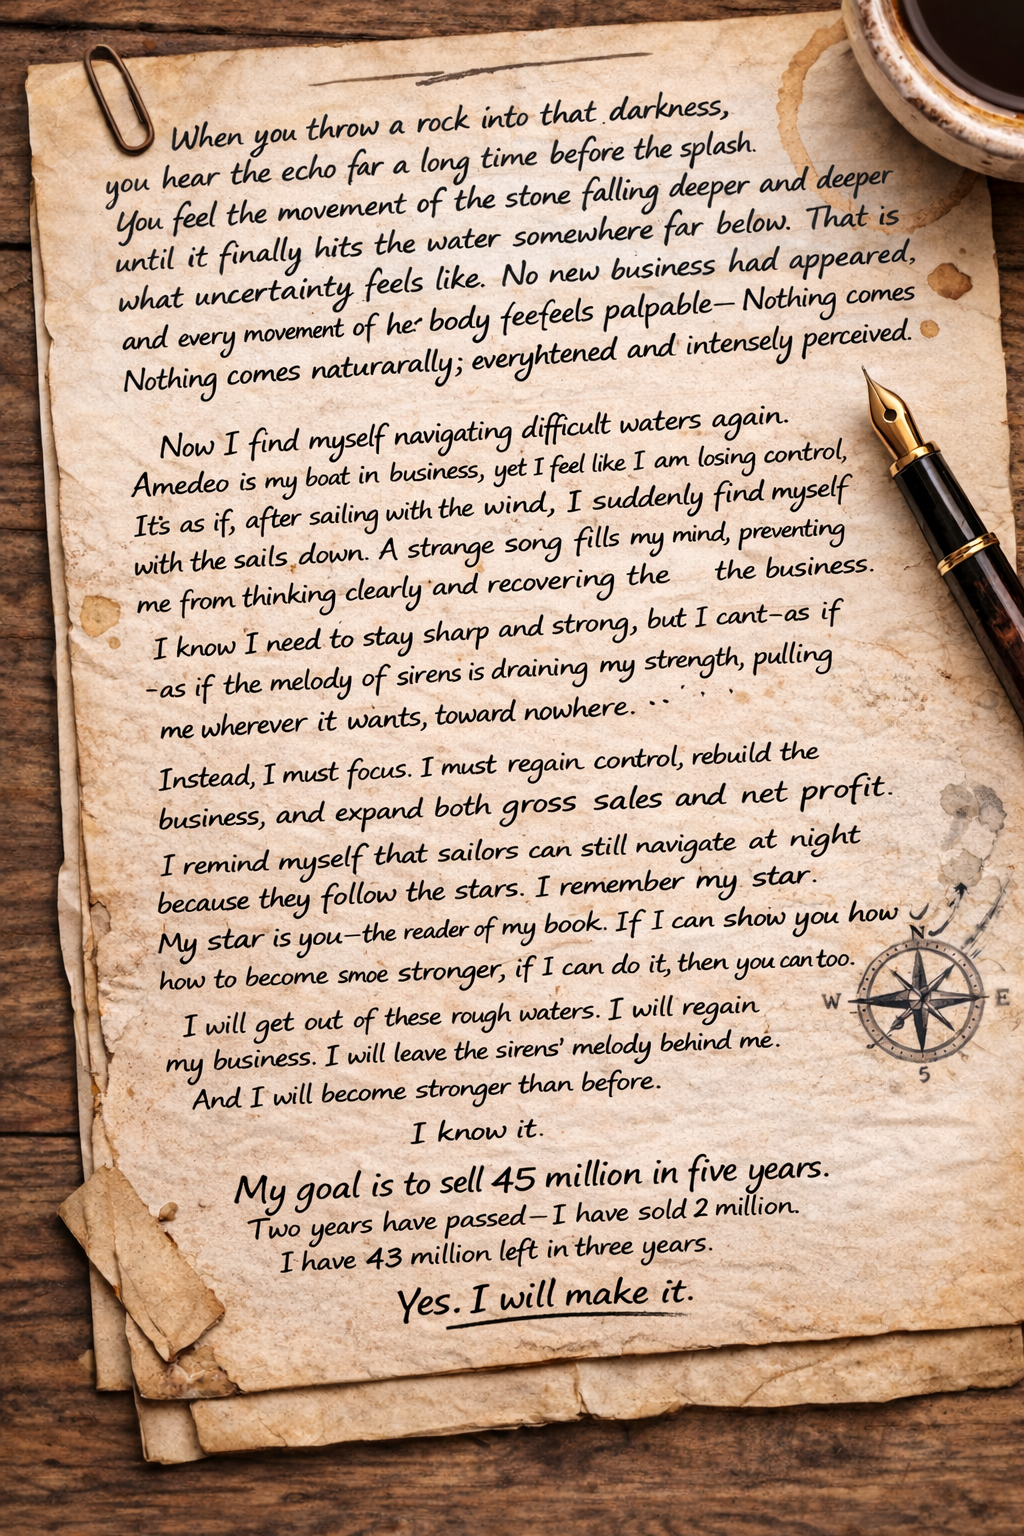 When you throw a rock into that darkness,
you hear the echo far a long time before the splash.
You feel the movement of the stone falling deeper and deeper
until it finally hits the water somewhere far below. That is
what uncertainty feels like. No new business had appeared,
and every movement of her body feefeels palpable— Nothing comes
Nothing comes naturarally; everyhtened and intensely perceived.
Now I find myself navigating difficult waters again.
Amedeo is my boat in business, yet I feel like I am losing control,
It's as if, after sailing with the wind, I suddenly find myself
with the sails down. A strange song fills my mind, preventing
me from thinking clearly and recovering the the business.
I know I need to stay sharp and strong, but I cant—as if
-as if the melody of sirens is draining my strength, pulling
me wherever it wants, toward nowhere.
Instead, I must focus. I must regain control, rebuild the
business, and expand both gross sales and net profit.
I remind myself that sailors can still navigate at night
because they follow the stars. I remember my star.
My star is you—the reader of my book. If I can show you how
how to become smoe stronger, if I can do it, then you can too.
N
W E
S
I will get out of these rough waters. I will regain
my business. I will leave the sirens' melody behind me.
And I will become stronger than before.
I know it.
My goal is to sell 45 million in five years.
Two years have passed—I have sold 2 million.
I have 43 million left in three years.
Yes. I will make it.